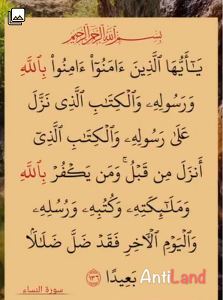 بِسْمِ اللَّهِ الرَّحْمَٰنِ الرَّحِيمِ
يَـٰٓأَيُّهَا ٱلَّذِينَ ءَامَنُوٓا۟ ءَامِنُوا۟ بِٱللَّهِ
وَرَسُولِهِۦ وَٱلْكِتَـٰبِ ٱلَّذِى نَزَّلَ
عَلَىٰ رَسُولِهِۦ وَٱلْكِتَـٰبِ ٱلَّذِىٓ
أَنزَلَ مِن قَبْلُ ۚ وَمَن يَكْفُرْ بِٱللَّهِ
وَمَلَـٰٓئِكَتِهِۦ وَكُتُبِهِۦ وَرُسُلِهِۦ
وَٱلْيَوْمِ ٱلْـَٔاخِرِ فَقَدْ ضَلَّ ضَلَـٰلًۢا
بَعِيدًا ١٣٦
AntiLand
سورة النساء